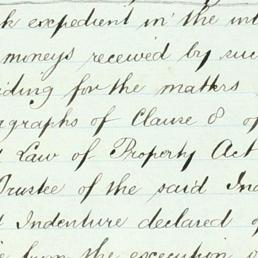 k expedient in the int
moneys received by suc
iding for the matters
agraphs of Clause 8 of
d Law of Property Act
Trustee of the said Ind
d Indenture declared o
from the execution o